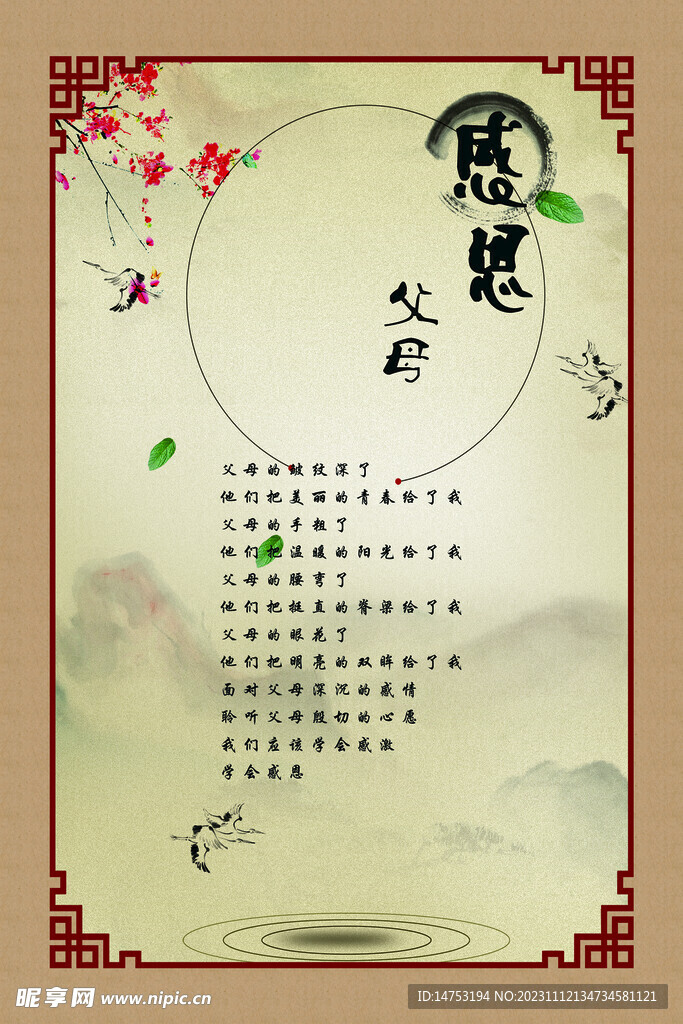 感恩
父母
父母的皱纹深了
他们把美丽的青春给了我
父母的手粗了
他们把温暖的阳光给了我
父母的腰弯了
他们把挺直的脊梁给了我
父母的眼花了
他们把明亮的双眸给了我
面对父母深沉的感情
聆听父母殷切的心愿
我们应该学会感激
学会感恩
昵享网 www.nipic.cn
ID:14753194 NO:20231112134734581121